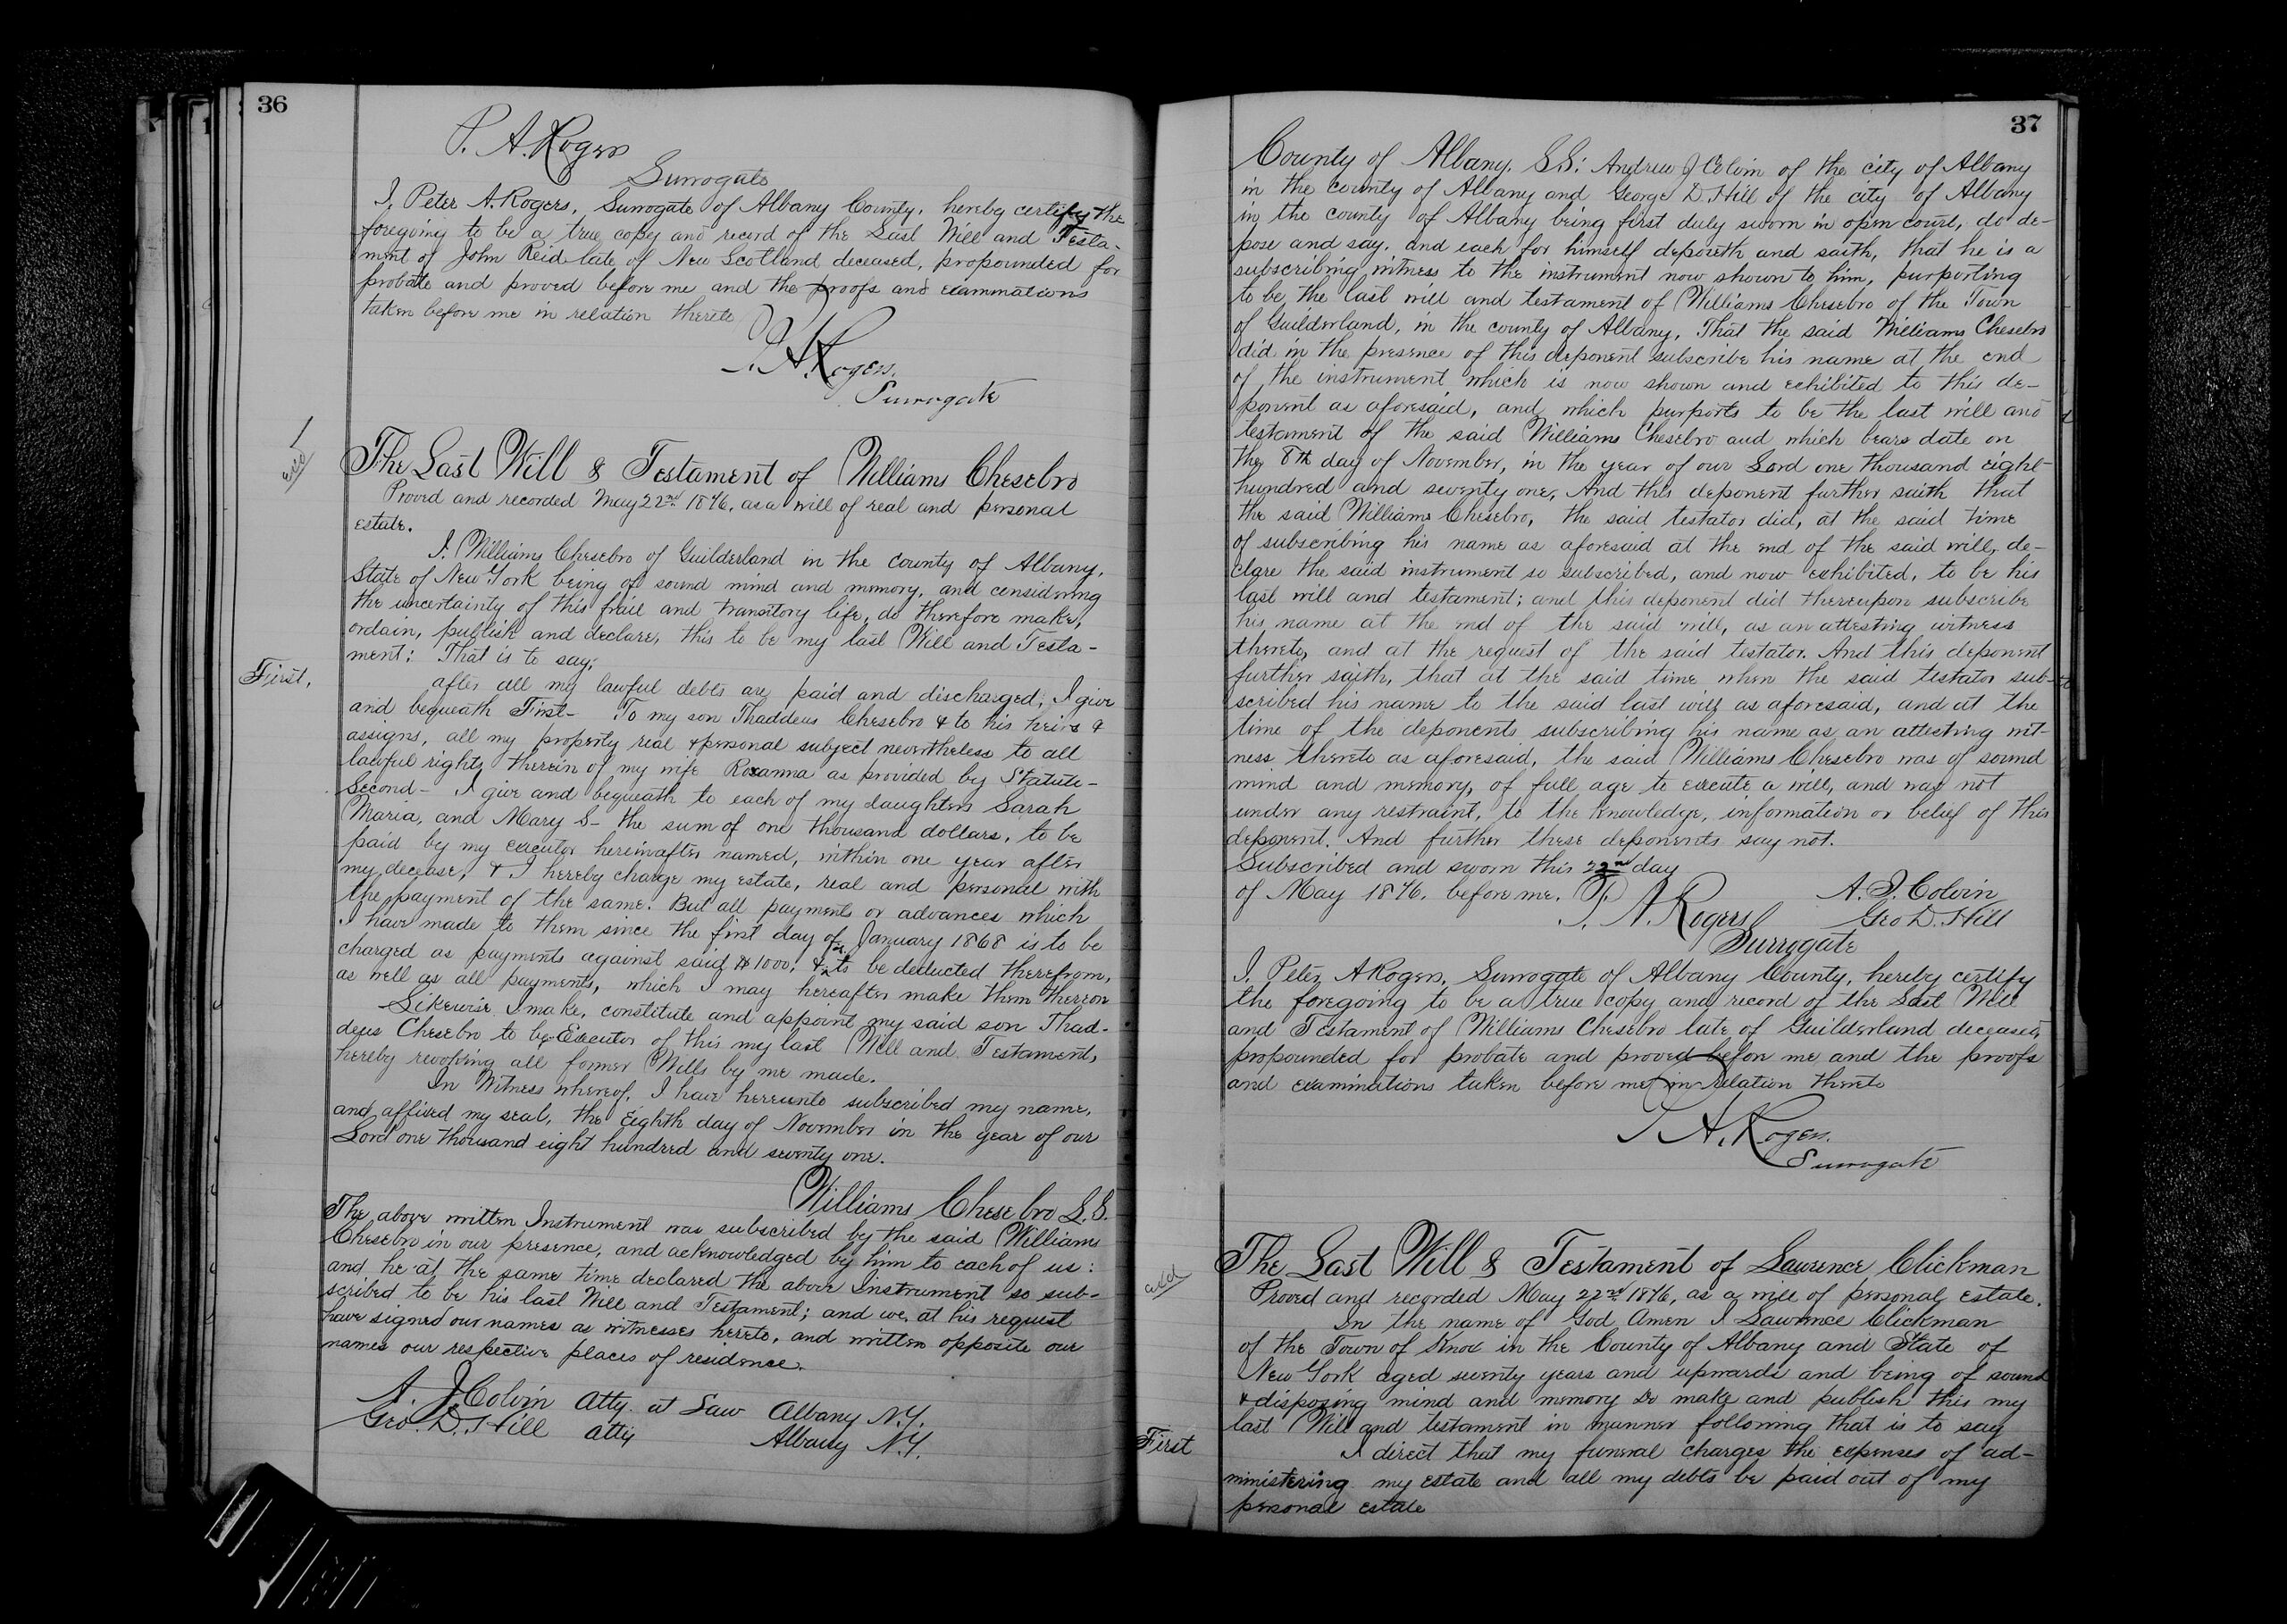 36
P. A. Rogers
Surrogate
I, Peter A. Rogers, Surrogate of Albany County, hereby certify the
foregoing to be a true copy and record of the Last Will and Testa-
ment of John Reid late of New Scotland deceased, propounded for
probate and proved before me and the proofs and examinations
taken before me in relation thereto
P. A. Rogers.
Surrogate
The Last Will & Testament of Williams Chesebro
Proved and recorded May 22nd 1876, as a will of real and personal
estate.
I, Williams Chesebro of Guilderland in the County of Albany,
State of New York being of sound mind and memory, and considering
the uncertainty of this frail and transitory life, do therefore make,
ordain, publish and declare, this to be my last Will and Testa-
ment: That is to say;
First,
after all my lawful debts are paid and discharged; I give
and bequeath First- To my son Thaddeus Chesebro & to his heirs &
assigns, all my property real & personal subject nevertheless to all
lawful rights therein of my wife Roxanna as provided by Statute-
Second- I give and bequeath to each of my daughters Sarah
Maria, and Mary S- the sum of one thousand dollars, to be
paid by my executor hereinafter named, within one year after
my decease, & I hereby charge my estate, real and personal with
the payment of the same. But all payments or advances which
I have made to them since the first day of January 1868 is to be
charged as payments against said $1000, & is to be deducted therefrom,
as well as all payments, which I may hereafter make them thereon
Likewise I make, constitute and appoint my said son Thad-
deus Chesebro to be Executor of this my last Will and Testament,
hereby revoking all former Wills by me made.
In Witness whereof, I have hereunto subscribed my name,
and affixed my seal, the Eighth day of November in the year of our
Lord one thousand eight hundred and seventy one.
Williams Chesebro L.S.
The above written Instrument was subscribed by the said Williams
Chesebro in our presence, and acknowledged by him to each of us:
and he at the same time declared the above Instrument so sub-
scribed to be his last Will and Testament; and we, at his request
have signed our names as witnesses hereto, and written opposite our
names our respective places of residence.
A. J. Colvin Atty. at Law Albany N.Y.
Geo. D. Hill Atty Albany N.Y.
37
County of Albany. SS: Andrew J Colvin of the city of Albany
in the county of Albany and George D. Hill of the city of Albany
in the county of Albany being first duly sworn in open court, do de-
pose and say, and each for himself deposeth and saith, that he is a
subscribing witness to the instrument now shown to him, purporting
to be the last will and testament of Williams Chesebro of the Town
of Guilderland, in the county of Albany, That the said Williams Chesebro
did in the presence of this deponent subscribe his name at the end
of the instrument which is now shown and exhibited to this de-
ponent as aforesaid, and which purports to be the last will and
testament of the said Williams Chesebro and which bears date on
the 8th day of November, in the year of our Lord one thousand eight
hundred and seventy one, And this deponent further saith that
the said Williams Chesebro, the said testator did, at the said time
of subscribing his name as aforesaid at the end of the said will, de-
clare the said instrument so subscribed, and now exhibited, to be his
last will and testament; and this deponent did thereupon subscribe
his name at the end of the said will, as an attesting witness
thereto, and at the request of the said testator. And this deponent
further saith, that at the said time when the said testator sub-
scribed his name to the said last will as aforesaid, and at the
time of the deponents subscribing his name as an attesting wit-
ness thereto as aforesaid, the said Williams Chesebro was of sound
mind and memory, of full age to execute a will, and was not
under any restraint, to the knowledge, information or belief of this
deponent. And further these deponents say not.
Subscribed and sworn this 22nd day
of May 1876. before me. A. J. Colvin
P. A. Rogers Geo D. Hill
Surrogate
I, Peter A Rogers, Surrogate of Albany County, hereby certify
the foregoing to be a true copy and record of the Last Will
and Testament of Williams Chesebro late of Guilderland deceased,
propounded for probate and proved before me and the proofs
and examinations taken before me in relation thereto
P. A. Rogers.
Surrogate
The Last Will & Testament of Lawrence Clickman
Proved and recorded May 22nd 1876, as a will of personal estate.
In the name of God Amen I Lawrence Clickman
of the Town of Knox in the County of Albany and State of
New York aged seventy years and upwards and being of sound
& disposing mind and memory Do make and publish this my
last Will and testament in manner following that is to say
First
I direct that my funeral charges the expenses of ad-
ministering my estate and all my debts be paid out of my
personal estate